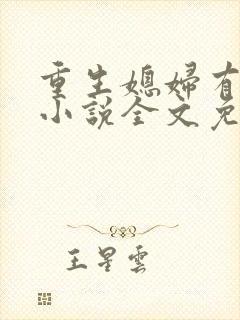 重生媳婦有
小說全文免
王星雲